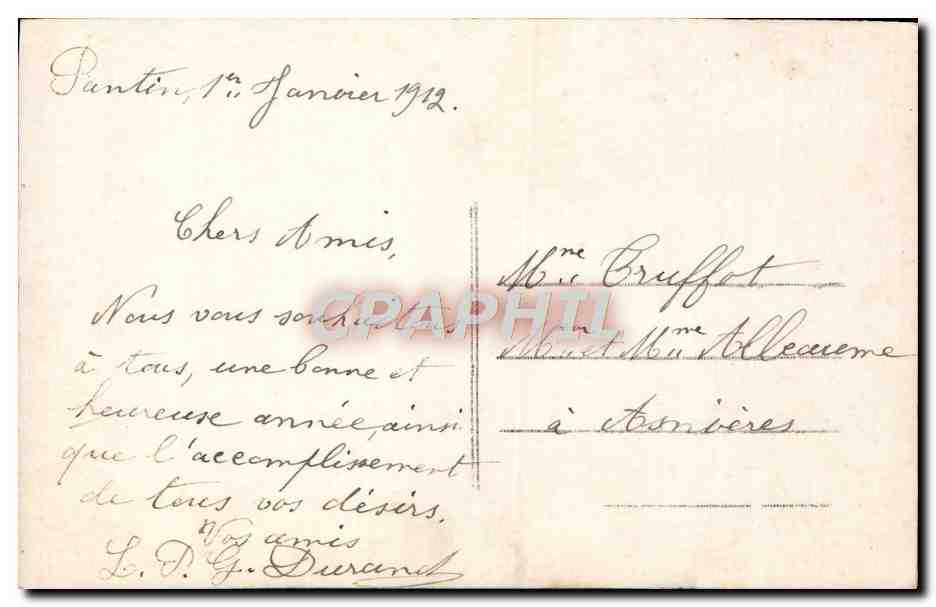 Pantin, 1er Janvier 1912.
Chers Amis,
Nous vous souhaitons
à tous, une bonne et
heureuse année, ainsi
que l'accomplissement
de tous vos désirs.
Vos amis
L. P. G. Durand
Mme Truffot
Mon et Mme Alleaume
à Asnières
CPAPHIL